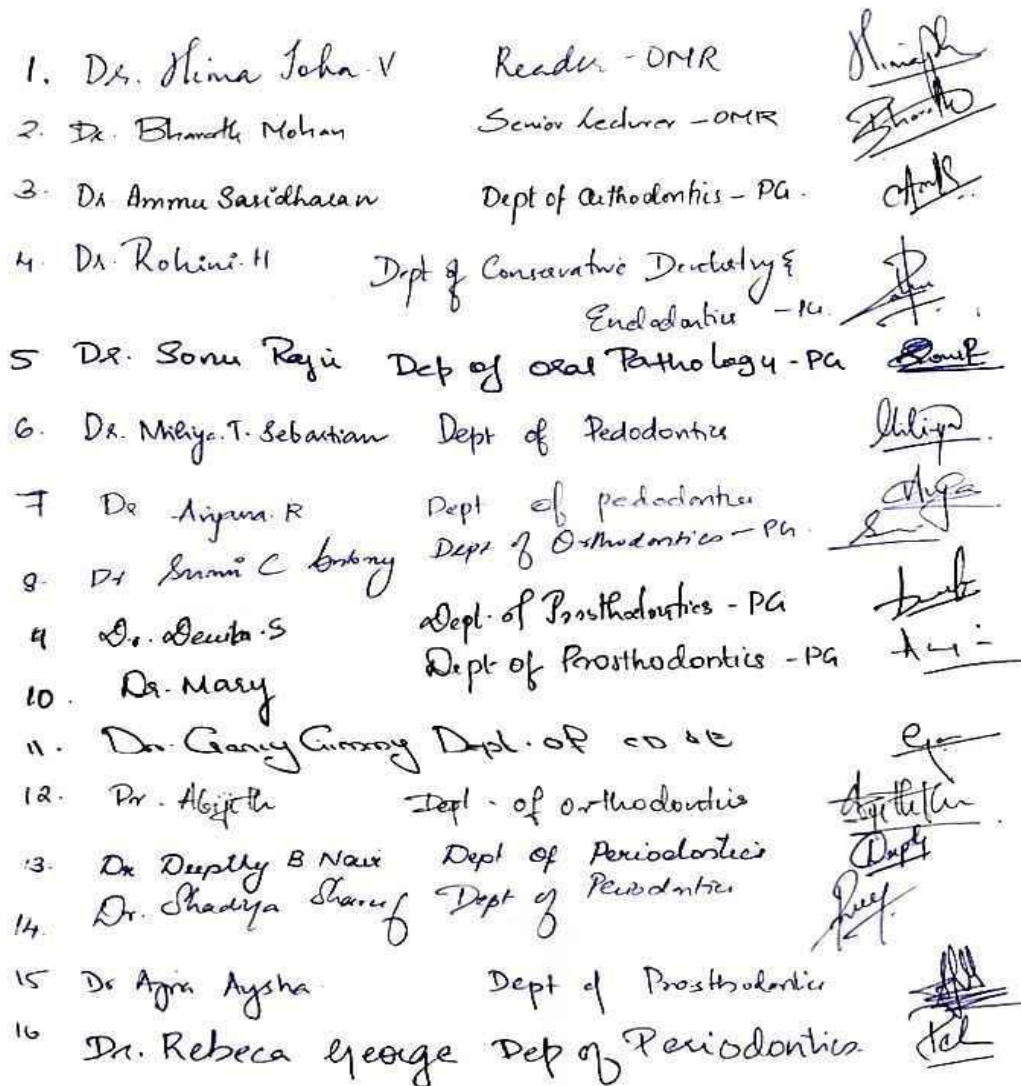 1. Dr. Hima John V Reader - OMR
2. Dr. Bharath Mohan Senior Lecturer - OMR Bharath
3. Dr Ammu Sasidharan Dept of Orthodontics - PG.
4. Dr. Rohini. H Dept of Conservative Dentistry &
Endodontics - PG.
5 Dr. Sonu Raju Dep of oral Pathology - PG
6. Dr. Miliya. T. Sebastian Dept of Pedodontics Miliya
7 Dr R Dept of pedodontics
8. Dr C Antony Dept of Orthodontics - PG.
9 Dr. S Dept. of Prosthodontics - PG
10. Dr. Mary Dept of Prosthodontics - PG
11. Dr. Dept. of CD & E
12. Dr. Abijith Dept. of orthodontics
13. Dr Deepthy B Nair Dept of Periodontics
14. Dr. Shadiya Shareef Dept of Periodontics
15 Dr Aysha Dept of Prosthodontics
16 Dr. Rebeca George Dep of Periodontics